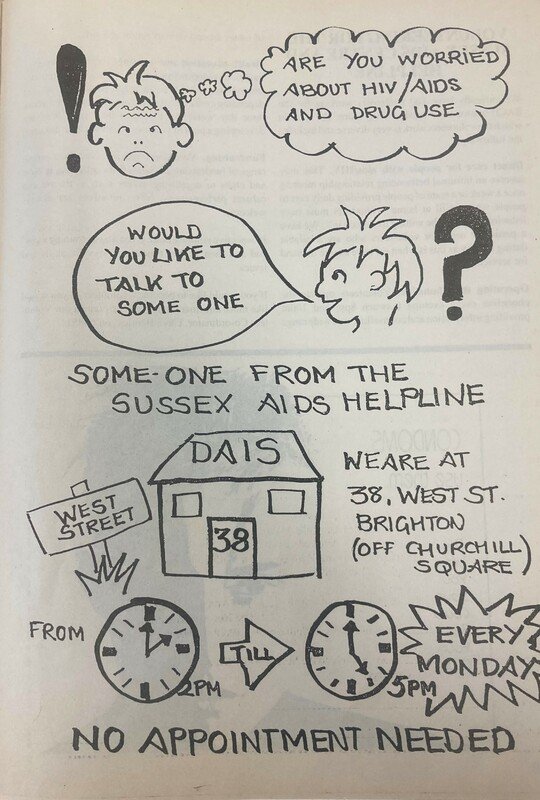 !
ARE YOU WORRIED
ABOUT HIV/AIDS
AND DRUG USE
WOULD
YOU LIKE TO
TALK TO
SOME ONE
?
SOME-ONE FROM THE
SUSSEX AIDS HELPLINE
DAIS
38
WEST
STREET
WE ARE AT
38, WEST ST.
BRIGHTON
(OFF CHURCHILL)
SQUARE)
FROM
2PM
TILL
5PM
EVERY
MONDAY
NO APPOINTMENT NEEDED